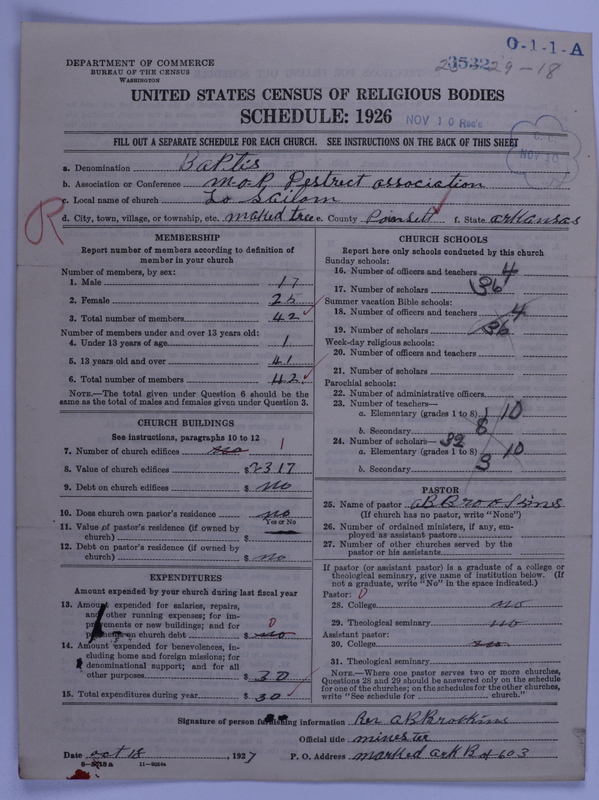 O-1-1-A
DEPARTMENT OF COMMERCE
BUREAU OF THE CENSUS
WASHINGTON
29-18
UNITED STATES CENSUS OF RELIGIOUS BODIES
SCHEDULE: 1926
NOV 10 Rec'd
NOV 10
FILL OUT A SEPARATE SCHEDULE FOR EACH CHURCH. SEE INSTRUCTIONS ON THE BACK OF THIS SHEET
R
a. Denomination Baptis
b. Association or Conference M.O.P. Destrect association
c. Local name of church
d. City, town, village, or township, etc. Marked tree e. County Poinsett f. State arkansas
MEMBERSHIP
Report number of members according to definition of
member in your church
Number of members, by sex:
1. Male 17
2. Female 25
3. Total number of members 42
Number of members under and over 13 years old:
4. Under 13 years of age 1
5. 13 years old and over 41
6. Total number of members 42
NOTE.—The total given under Question 6 should be
same as the total of males and females given under Question 3.
CHURCH BUILDINGS
See instructions, paragraphs 10 to 12
7. Number of church edifices no 1
8. Value of church edifices $2317
9. Debt on church edifices $ no
10. Does church own pastor's residence no
Yes or No
11. Value of pastor's residence (if owned by
church) $
12. Debt on pastor's residence (if owned by
church) $ no
EXPENDITURES
Amount expended by your church during last fiscal year
13. Amount expended for salaries, repairs,
and other running expenses; for im-
provements or new buildings; and for
payments on church debt $ no 0
14. Amount expended for benevolences, in-
cluding home and foreign missions; for
denominational support; and for all
other purposes $ 30
15. Total expenditures during year $ 30
CHURCH SCHOOLS
Report here only schools conducted by this church
Sunday schools:
16. Number of officers and teachers 4
17. Number of scholars 36
Summer vacation Bible schools:
18. Number of officers and teachers 4
19. Number of scholars 36
Week-day religious schools:
20. Number of officers and teachers
21. Number of scholars
Parochial schools:
22. Number of administrative officers
23. Number of teachers—
a. Elementary (grades 1 to 8) 10
b. Secondary 8
24. Number of scholars— 32
a. Elementary (grades 1 to 8) 10
b. Secondary 3
PASTOR
25. Name of pastor
(If church has no pastor, write "None")
26. Number of ordained ministers, if any, em-
ployed as assistant pastors
27. Number of other churches served by the
pastor or his assistants
If pastor (or assistant pastor) is a graduate of a college or
theological seminary, give name of institution below. (If
not a graduate, write "No" in the space indicated.)
Pastor: 0
28. College no
29. Theological seminary no
Assistant pastor:
30. College no
31. Theological seminary
NOTE.—Where one pastor serves two or more churches,
Questions 28 and 29 should be answered only on the schedule
for one of the churches; on the schedules for the other churches,
write "See schedule for church."
Signature of person furnishing information Rev A B Brookins
Official title minester
Date oct 18, 1927 P. O. Address marked ark B of 603
11-9164a